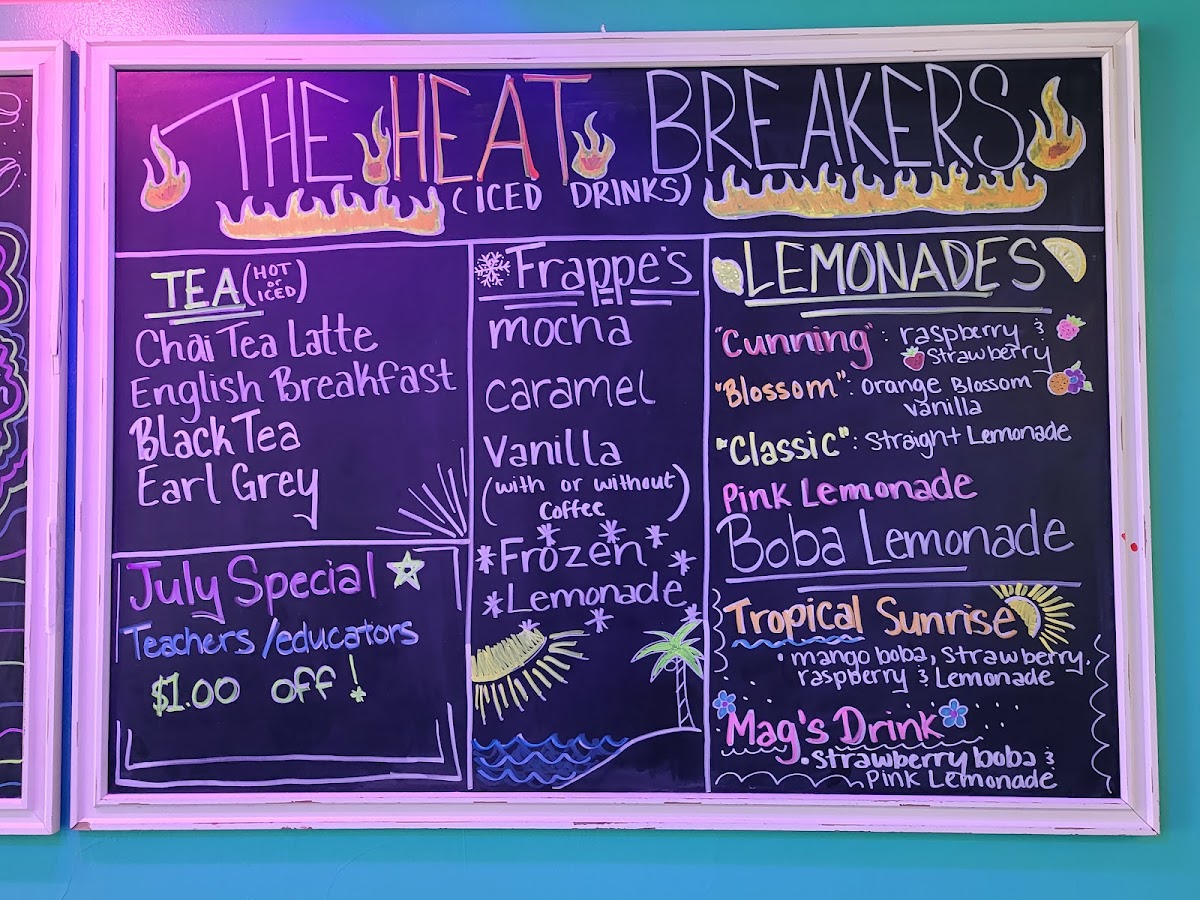 THE HEAT BREAKERS
(ICED DRINKS)
TEA (HOT or ICED)
Chai Tea Latte
English Breakfast
Black Tea
Earl Grey
July Special
Teachers/educators
$1.00 off!
Frappe's
mocha
caramel
Vanilla
(with or without
coffee)
Frozen
Lemonade
LEMONADES
"Cunning": raspberry &
Strawberry
"Blossom": Orange Blossom
vanilla
"Classic": Straight Lemonade
Pink Lemonade
Boba Lemonade
Tropical Sunrise
• mango boba, Strawberry,
raspberry & Lemonade
Mag's Drink
• Strawberry boba &
Pink Lemonade